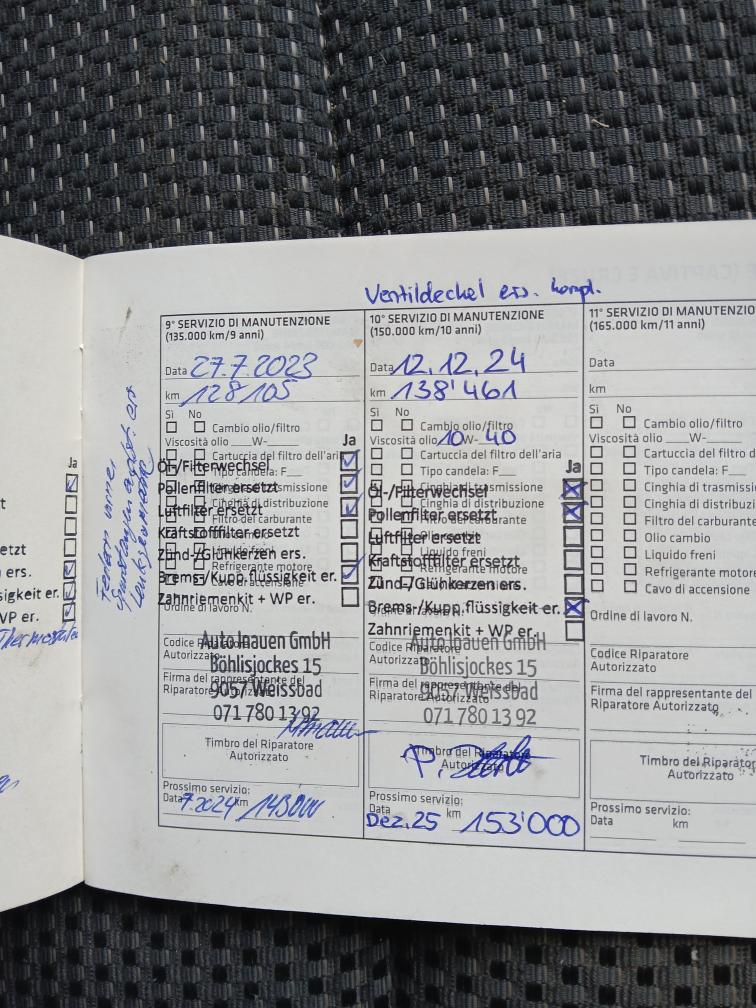 (CAPTIVA E
Ventildeckel ers. kompl.
Ja
t
etzt
ers.
sigkeit er.
WP er.
Thermostat
Federn vorne
9° SERVIZIO DI MANUTENZIONE
(135.000 km/9 anni)
Data 27.7.2023
km 128105
Sì No
Cambio olio/filtro
Viscosità olio ___W-___
Ja
Cartuccia del filtro dell'aria
Öl-/Filterwechsel
Tipo candela: F__
Pollenfilter ersetzt
Cinghia di trasmissione
Luftfilter ersetzt
Cinghia di distribuzione
Filtro del carburante
Kraftstoffilter ersetzt
Zünd-/Glühkerzen ers.
Liquido freni
Refrigerante motore
Brems-/Kupp.flüssigkeit er.
Cavo di accensione
Zahnriemenkit + WP er.
Ordine di lavoro N.
Auto Inauen GmbH
Codice Riparatore
Autorizzato
Böhlisjockes 15
Firma del rappresentante del
Riparatore Autorizzato
9057 Weissbad
071 780 13 92
Timbro del Riparatore
Autorizzato
Prossimo servizio:
Data 7.2024 km 143000
10° SERVIZIO DI MANUTENZIONE
(150.000 km/10 anni)
Data 12.12.24
km 138'461
Sì No
Cambio olio/filtro
Viscosità olio 10 W- 40
Cartuccia del filtro dell'aria
Ja
Tipo candela: F__
Cinghia di trasmissione
Öl-/Filterwechsel
Cinghia di distribuzione
Pollenfilter ersetzt
Filtro del carburante
Luftfilter ersetzt
Liquido freni
Kraftstoffilter ersetzt
Refrigerante motore
Zünd-/Glühkerzen ers.
Brems-/Kupp.flüssigkeit er.
Zahnriemenkit + WP er.
Auto Inauen GmbH
Codice Riparatore
Autorizzato
Böhlisjockes 15
Firma del rappresentante del
Riparatore Autorizzato
9057 Weissbad
071 780 13 92
Timbro del Riparatore
Autorizzato
Prossimo servizio:
Data km
Dez.25 153'000
11° SERVIZIO DI MANUTENZIO
(165.000 km/11 anni)
Data
km
Sì No
Cambio olio/filtro
Viscosità olio ___W-___
Cartuccia del filtro d
Tipo candela: F__
Cinghia di trasmissi
Cinghia di distribuzi
Filtro del carburante
Olio cambio
Liquido freni
Refrigerante motore
Cavo di accensione
Ordine di lavoro N.
Codice Riparatore
Autorizzato
Firma del rappresentante del
Riparatore Autorizzato
Timbro del Riparator
Autorizzato
Prossimo servizio:
Data km